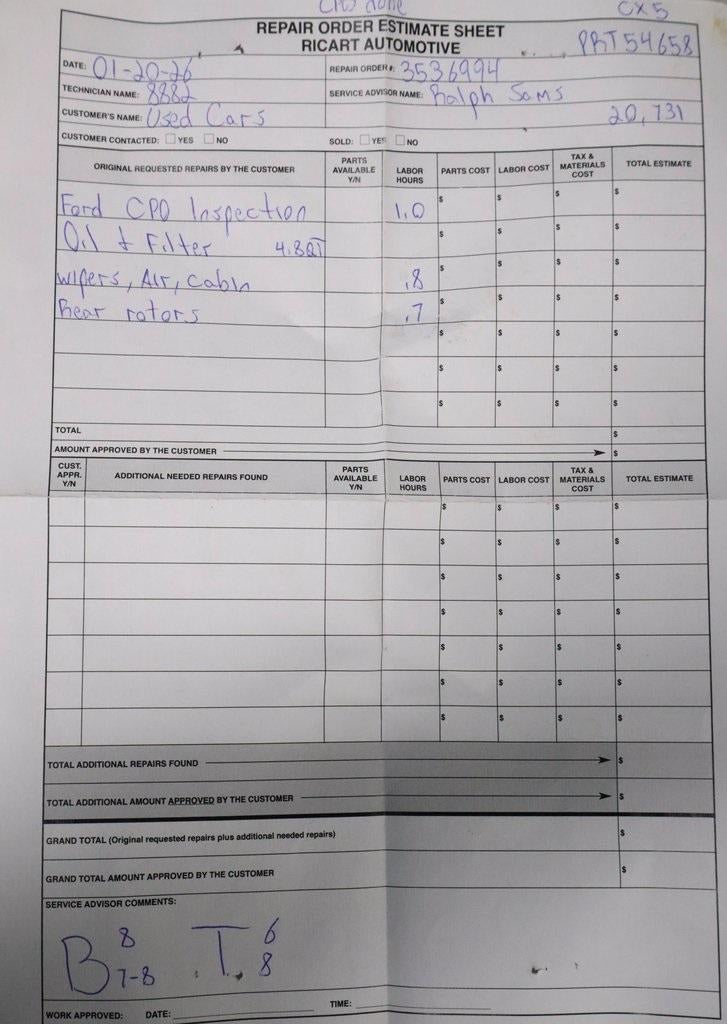 CPO done
CX5
REPAIR ORDER ESTIMATE SHEET
RICART AUTOMOTIVE
PRT54658
DATE: 01-20-26 REPAIR ORDER#: 3536994
TECHNICIAN NAME: 8882 SERVICE ADVISOR NAME: Ralph Sams
CUSTOMER'S NAME: Used Cars 20,731
CUSTOMER CONTACTED: YES NO SOLD: YES NO
ORIGINAL REQUESTED REPAIRS BY THE CUSTOMER PARTS AVAILABLE Y/N LABOR HOURS PARTS COST LABOR COST TAX & MATERIALS COST TOTAL ESTIMATE
Ford CPO Inspection 1.0 $ $ $ $
Oil & Filter 4.8QT $ $ $ $
wipers, Air, Cabin .8 $ $ $ $
Rear rotors .7 $ $ $ $
$ $ $ $
$ $ $ $
$ $ $ $
TOTAL $
AMOUNT APPROVED BY THE CUSTOMER $
CUST. APPR. Y/N ADDITIONAL NEEDED REPAIRS FOUND PARTS AVAILABLE Y/N LABOR HOURS PARTS COST LABOR COST TAX & MATERIALS COST TOTAL ESTIMATE
$ $ $ $
$ $ $ $
$ $ $ $
$ $ $ $
$ $ $ $
$ $ $ $
$ $ $ $
TOTAL ADDITIONAL REPAIRS FOUND $
TOTAL ADDITIONAL AMOUNT APPROVED BY THE CUSTOMER $
GRAND TOTAL (Original requested repairs plus additional needed repairs) $
GRAND TOTAL AMOUNT APPROVED BY THE CUSTOMER $
SERVICE ADVISOR COMMENTS:
B 8 7-8 T 6 8
WORK APPROVED: DATE: TIME: